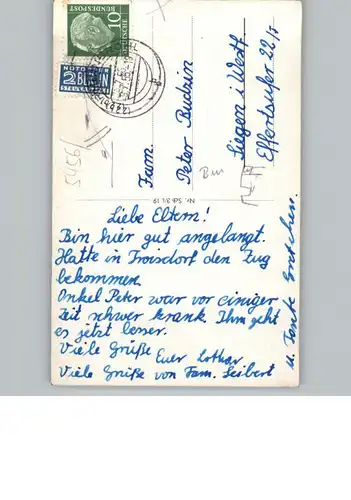 10
DEUTSCHE
BUNDESPOST
NOTOPFER
2 BERLIN
STEUERMARKE
5456
Fam.
Peter Budzin
Siegen i/Westf.
Effertsufer 22/7
Liebe Eltern!
Bin hier gut angelangt.
Hatte in Troisdorf den Zug
bekommen.
Onkel Peter war vor einiger
Zeit schwer krank. Ihm geht
es jetzt besser.
Viele Grüße Euer Lothar
Viele Grüße von Fam. Seibert
u. Tante Gretchen.